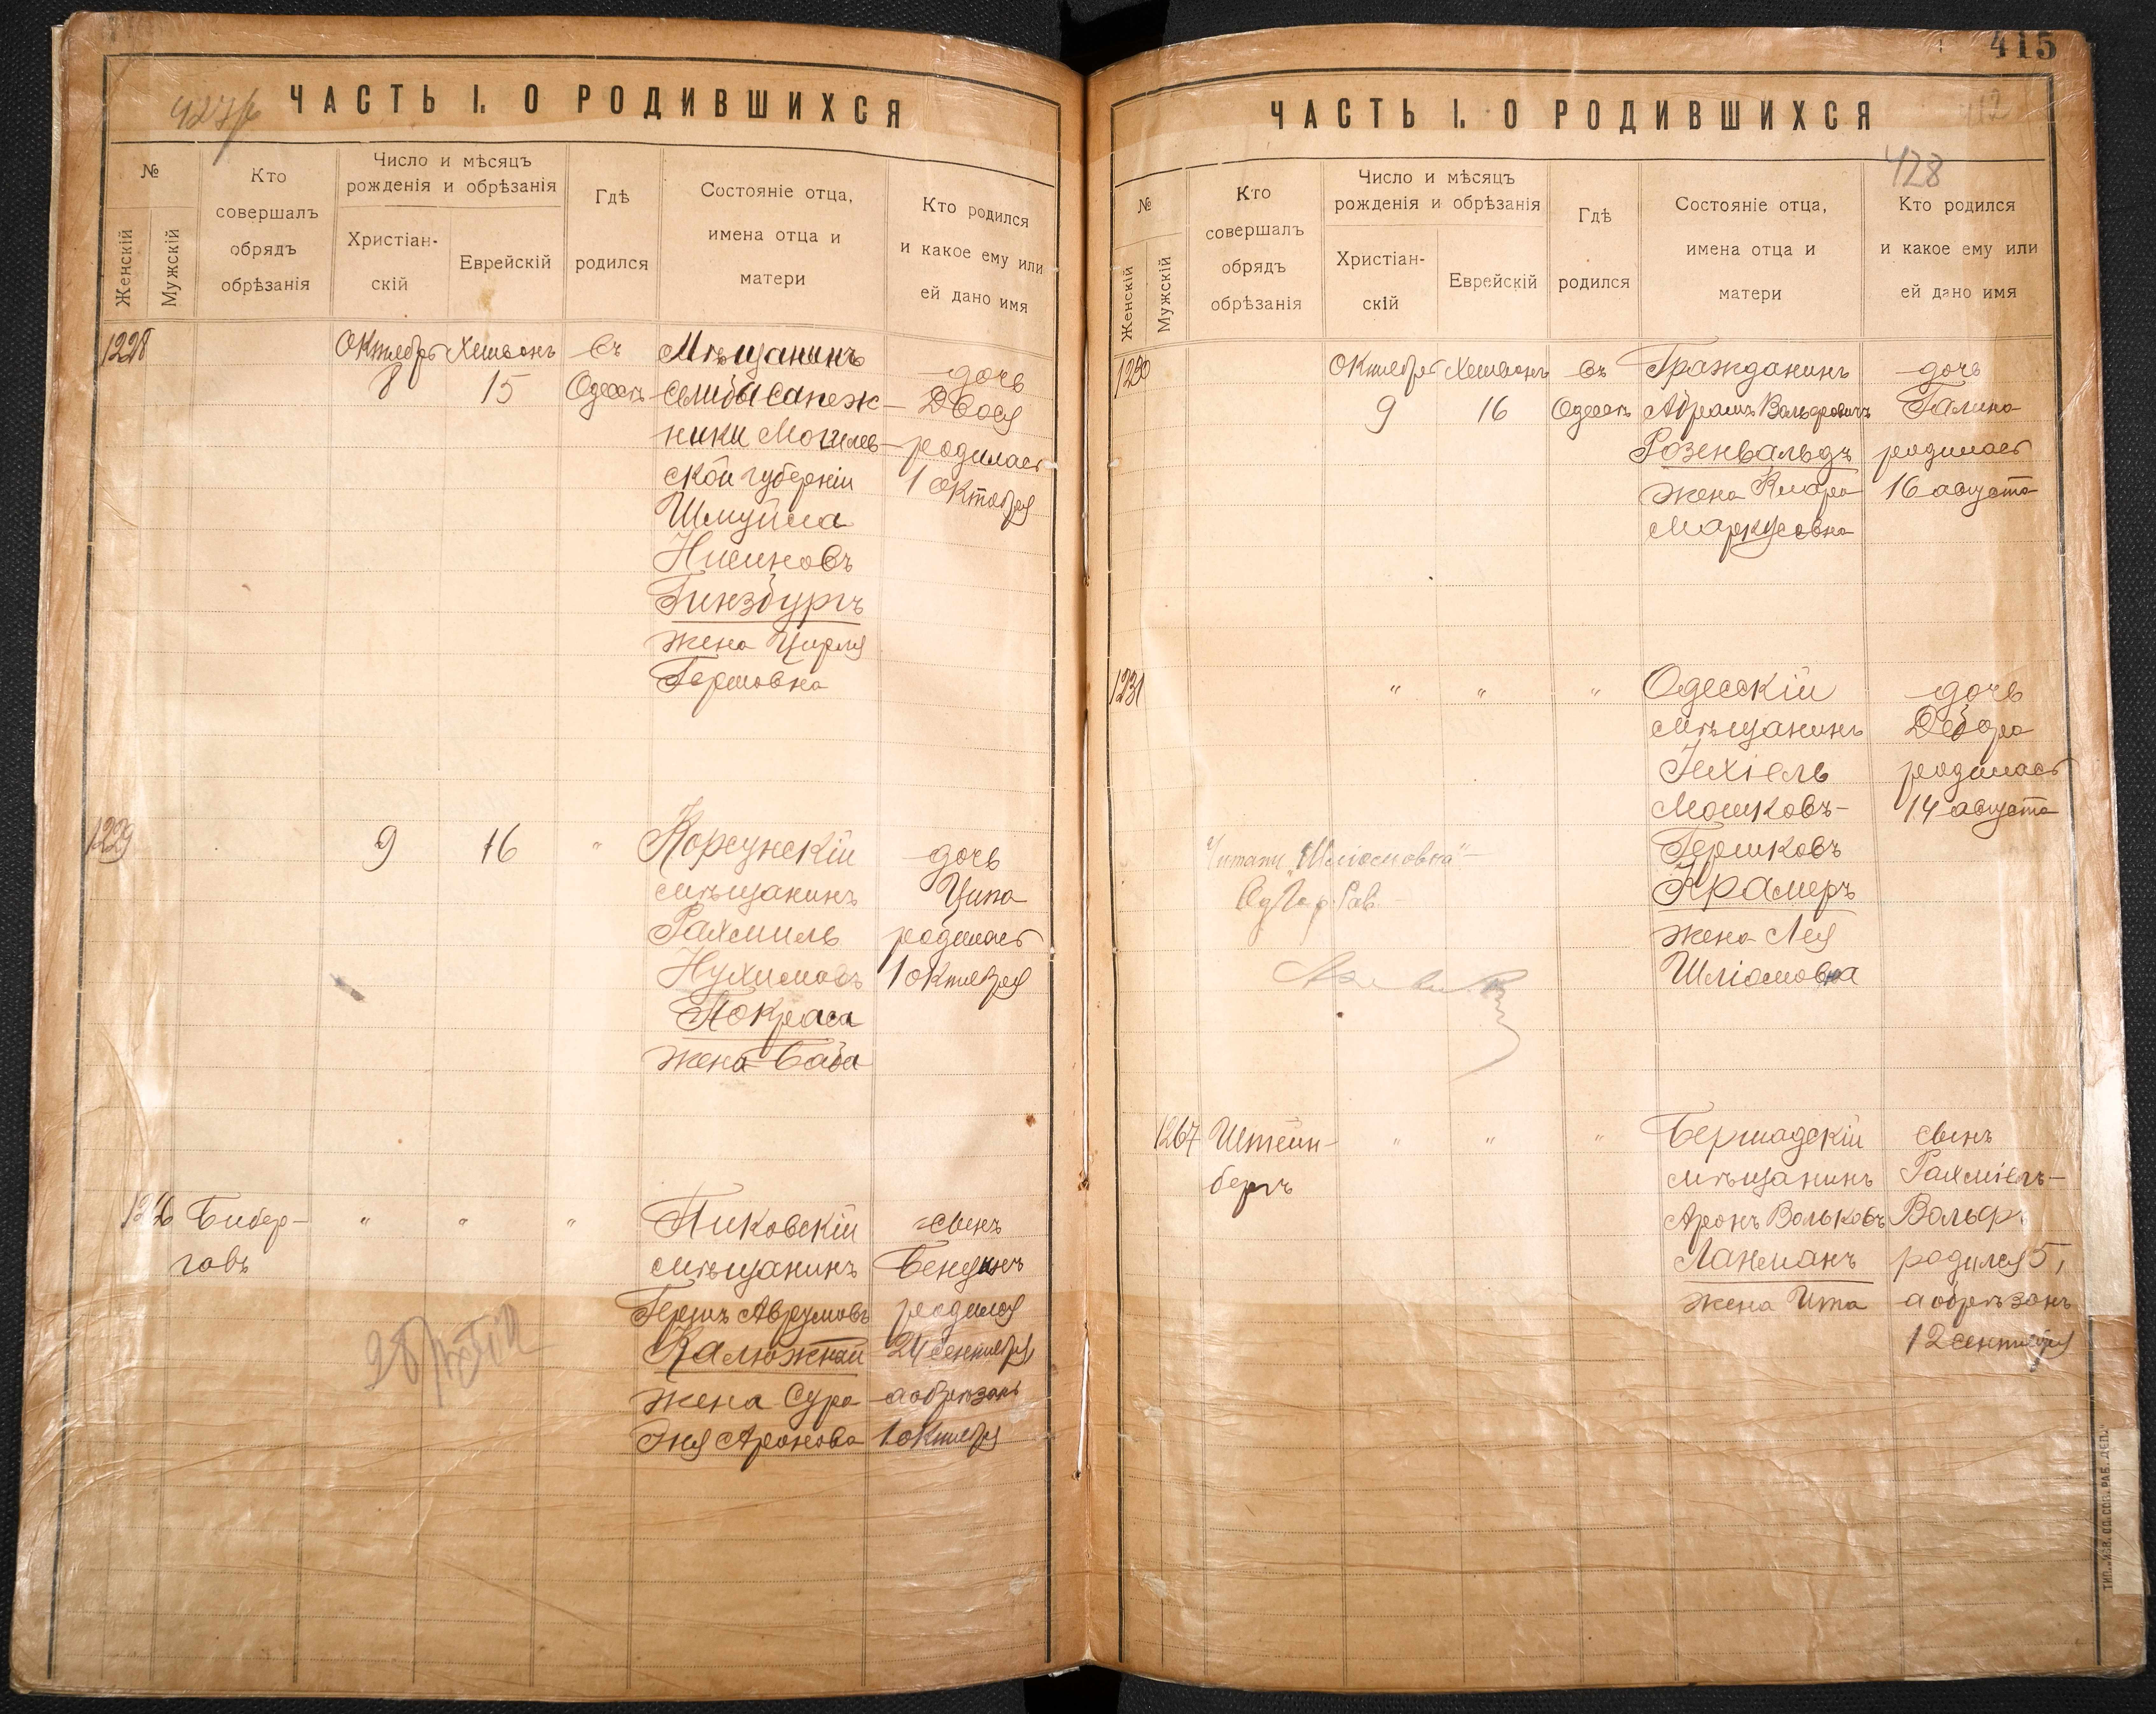 427/6
ЧАСТЬ I. О РОДИВШИХСЯ
№
Женскій
Мужскій
Кто
совершалъ
обрядъ
обрѣзанія
Число и мѣсяцъ
рожденія и обрѣзанія
Христіан-
скій
Еврейскій
Гдѣ
родился
Состояніе отца,
имена отца и
матери
Кто родился
и какое ему или
ей дано имя
1228
Октябрь
8
Хешванъ
15
въ
Одессѣ
Мѣщанинъ
ники Могилев-
ской губерніи
Шмуйла
Нисиновъ
Гинзбургъ
жена Цирля
Гершовна
дочь
Двося
родилась
1 октября
1229
9
16
"
Корсунскій
мѣщанинъ
Рахмиль
Нухимовъ
Покраса
жена Баба
дочь
Ципа
родилась
1 октября
1266
Бибер-
галъ
"
"
"
Пиковскій
мѣщанинъ
Гершъ Аврумовъ
Калюжный
жена Сура
Эня Аронова
сынъ
родился
24 сентября,
а обрѣзанъ
1 октября
415
412
ЧАСТЬ I. О РОДИВШИХСЯ
428
№
Женскій
Мужскій
Кто
совершалъ
обрядъ
обрѣзанія
Число и мѣсяцъ
рожденія и обрѣзанія
Христіан-
скій
Еврейскій
Гдѣ
родился
Состояніе отца,
имена отца и
матери
Кто родился
и какое ему или
ей дано имя
1230
Октябрь
9
Хешванъ
16
въ
Одессѣ
Гражданинъ
Абрамъ Вольфовичъ
Розенвальдъ
жена Клара
Маркусовна
дочь
Галина
родилась
16 августа
1231
"
"
"
Одесскій
мѣщанинъ
Іехіель
Мошковъ-
Гершковъ
Крамеръ
жена Лея
Шліомовна
дочь
Дебора
родилась
14 августа
Читать „Шліомовна“ –
Од. Гор. Рав.
1267
Штейн-
бергъ
"
"
"
Бершадскій
мѣщанинъ
Аронъ Вольковъ
Лансманъ
жена Ита
сынъ
Рахміель-
Вольф
родился 5,
а обрѣзанъ
12 сентября
ТИП. „ИЗВ. ОД. СОВ. РАБ. ДЕП.“